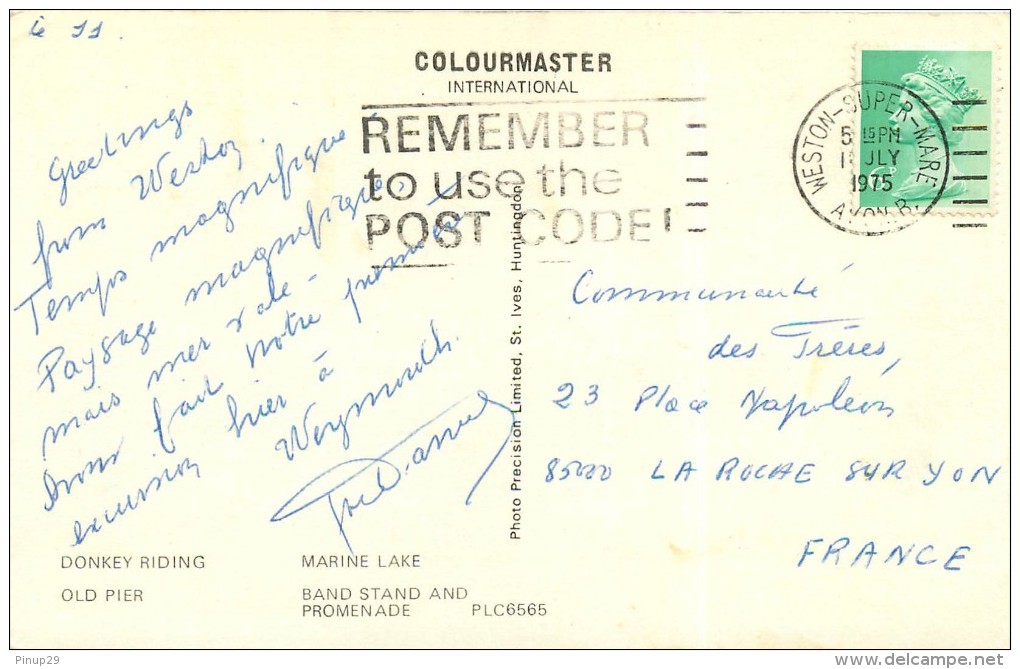 le 11.
COLOURMASTER
INTERNATIONAL
REMEMBER
to use the
POST CODE!
WESTON-SUPER-MARE
5 15 PM
JLY
1975
AVON
Greetings
from Weston.
Temps magnifique
Paysage magnifique,
mais mer
Avons fait notre première
excursion hier à
Weymouth.
Photo Precision Limited, St. Ives, Huntingdon
Communauté
des Frères,
23 Place Napoléon
85000 LA ROCHE SUR YON
FRANCE
DONKEY RIDING
MARINE LAKE
OLD PIER
BAND STAND AND
PROMENADE PLC6565
Pinup29
http://www.delcampe.net